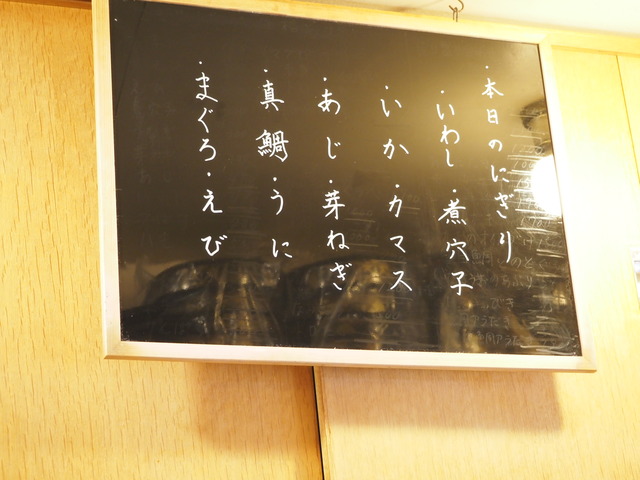 ・本日のにぎり
・いわし・煮穴子
・いか・カマス
・あじ・芽ねぎ
・真鯛・うに
・まぐろ・えび